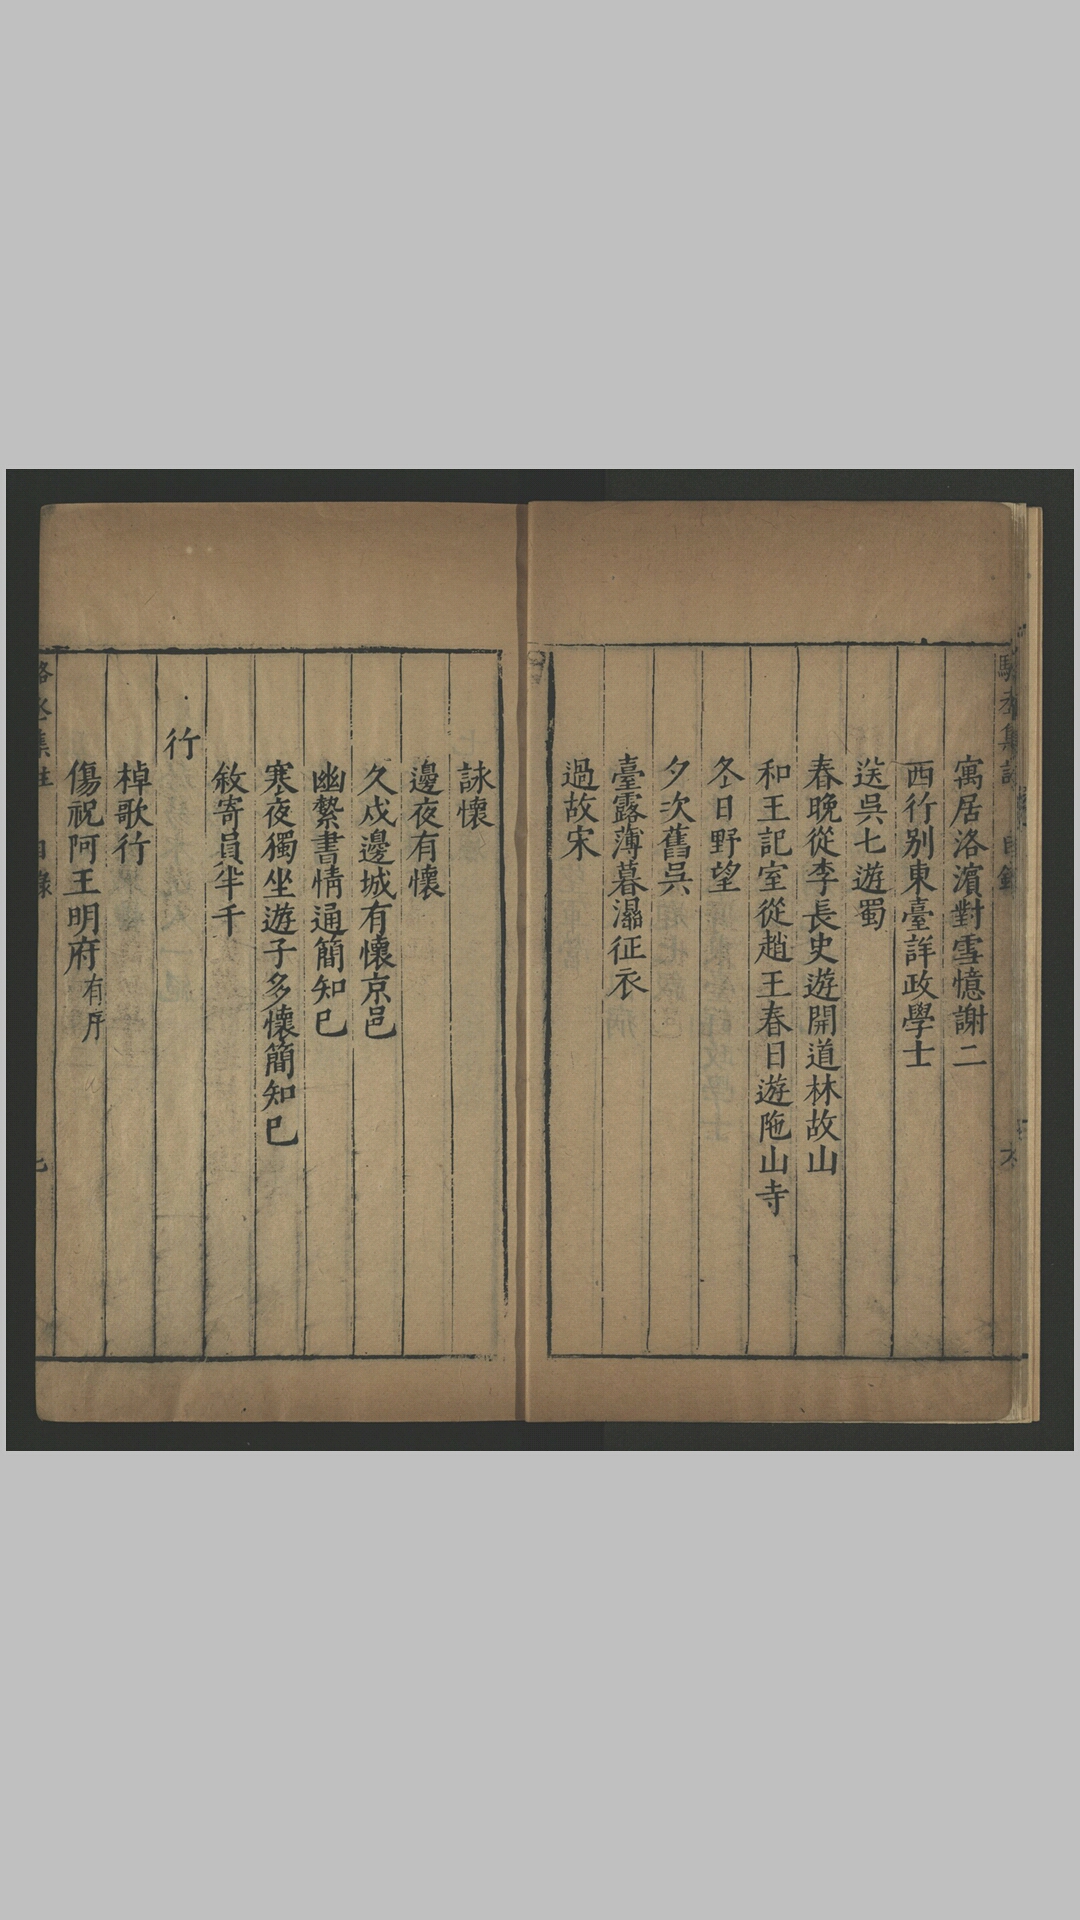 寓居洛濵對雪憶謝二
西行别東臺詳政學士
送吳七遊蜀
春晚從李長史遊開道林故山
和王記室從趙王春日遊陁山寺
冬日野望
夕次舊吳
臺露薄暮濕征衣
過故宋
詠懷
邊夜有懷
久戍邊城有懷京邑
幽縶書情通簡知已
寒夜獨坐遊子多懷簡知已
敘寄員半千
行
棹歌行
傷祝阿王明府有序